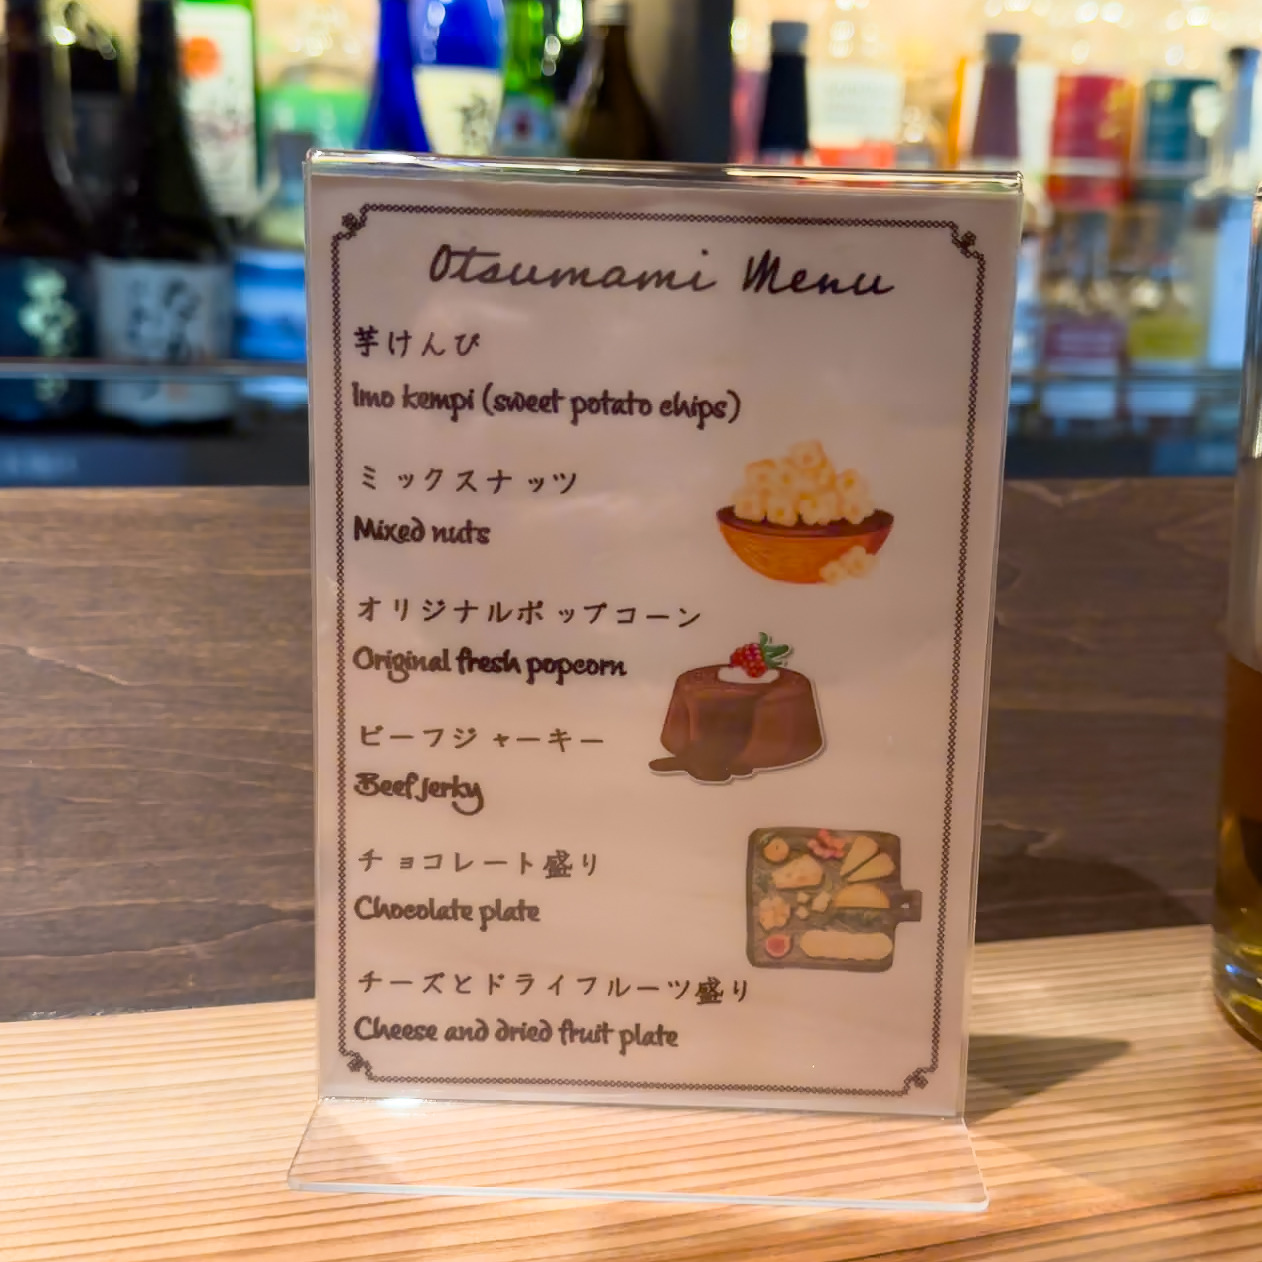 Otsumami Menu
芋けんぴ
Imo kempi (sweet potato chips)
ミックスナッツ
Mixed nuts
オリジナルポップコーン
Original fresh popcorn
ビーフジャーキー
Beef jerky
チョコレート盛り
Chocolate plate
チーズとドライフルーツ盛り
Cheese and dried fruit plate